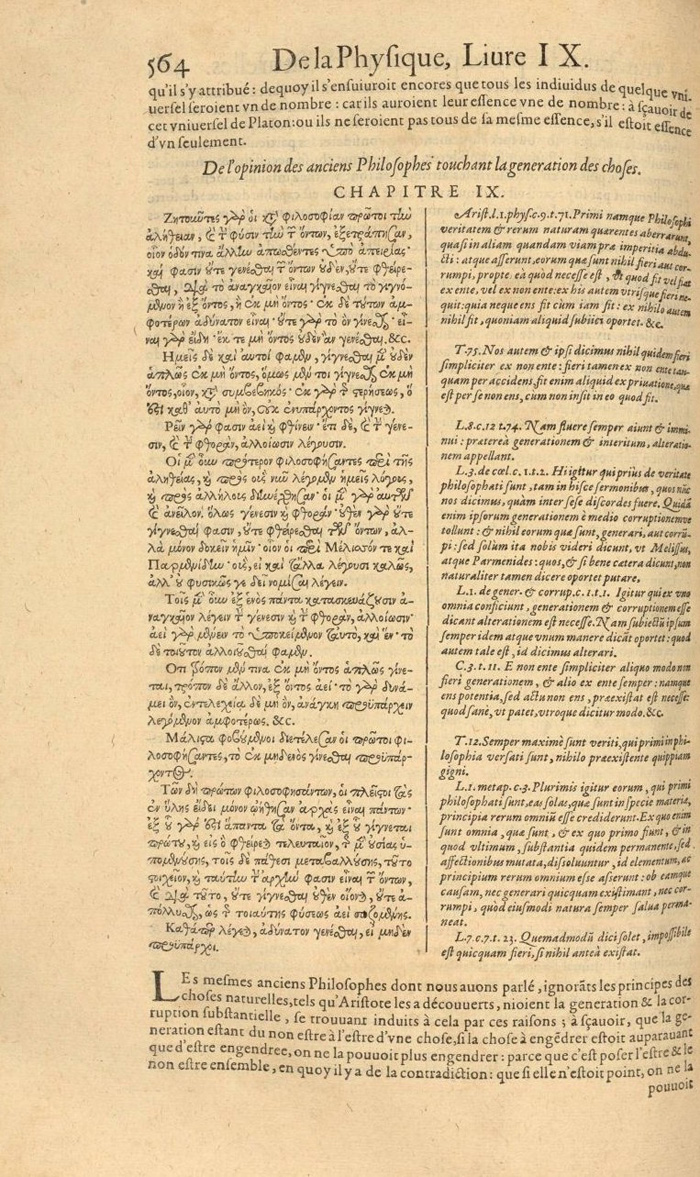 564 De la Phyſique, Liure IX.
qu'il s'y attribué : dequoy il s'enſuiuroit encores que tous les indiuidus de quelque vni-
uerſel ſeroient vn de nombre : car ils auroient leur eſſence vne de nombre : à ſçauoir de
cet vniuerſel de Platon: ou ils ne ſeroient pas tous de ſa meſme eſſence, s'il eſtoit eſſence
d'vn ſeulement.
De l'opinion des anciens Philoſophes touchant la generation des choſes.
CHAPITRE IX.
Ζητοῦντες γὰρ οἱ κτ' φιλοσοφίαν πρῶτοι τὼ
ἀλήθειαν, ϗ τ φύσιν τὼ τ ὄντων, ἐξετράπησαν,
οἷον ὁδόν τινα ἄλλω ἀπωθέντες ὑπὸ ἀπειρίας·
καί φασιν οὔτε γενέσθαι τ ὄντων οὐδεν, οὔτε φθείρε-
σθαι, διὰ τὸ ἀναγκαῖον εἶναι γίγνεσθαι τὸ γιγνό-
μενον ἢ ἐξ ὄντος, ἢ ἐκ μὴ ὄντος· ἐκ δὲ τούτων ἀμ-
φοτέρων ἀδύνατον εἶναι· οὔτε γὰρ τὸ ὂν γίνεσθαι· εἶ-
ναι γὰρ εἴδη· ἔκ τε μὴ ὄντος οὐδὲν ἂν γενέσθαι. &c.
Ἡμεῖς δὲ καὶ αὐτοί φαμεν, γίγνεσθαι μ οὐδὲν
ἁπλῶς ἐκ μὴ ὄντος, ὅμως μέν τοι γίγνεσθαι ἐκ μὴ
ὄντος, οἷον, κτ' συμβεβηκός· ἐκ γὰρ τ στερήσεως, ὅ
ὅστι καθ' αὑτὸ μὴ ὂν, οὐκ ἐνυπάρχοντος γίγνεται.
Ρεῖν γάρ φασιν ἀεὶ ϗ φθίνειν· ἔτι δὲ, ϗ τ γένε-
σιν, ϗ τ φθορὰν, ἀλλοίωσιν λέγουσιν.
Οἱ μ οὖν πρότερον φιλοσοφήσαντες περὶ τῆς
ἀληθείας, ϗ πρὸς οὓς νῦν λέγομεν ἡμεῖς λόγους,
ϗ πρὸς ἀλλήλους διηνέχθησαν· οἱ μ γὰρ αὐτῶν
ϗ ἀνεῖλον ὅλως γένεσιν ϗ φθοράν· οὐθὲν γὰρ οὔτε
γίγνεσθαί φασιν, οὔτε φθείρεσθαι τῶν ὄντων, ἀλ-
λὰ μόνον δοκεῖν ἡμῖν· οἷον οἱ περὶ Μέλισσόν τε καὶ
Παρμενίδην· οὓς, εἰ καὶ τἄλλα λέγουσι καλῶς,
ἀλλ' οὐ φυσικῶς γε δεῖ νομίσαι λέγειν.
Τοῖς μ οὖν ἐξ ἑνὸς πάντα κατασκευάζουσιν ἀ-
ναγκαῖον λέγειν τ γένεσιν ϗ τ φθορὰν, ἀλλοίωσιν·
ἀεὶ γὰρ μένειν τὸ ὑποκείμενον ταὐτὸ, καὶ ἕν· τὸ
δὲ τοιοῦτον ἀλλοιοῦσθαί φαμεν.
Οτι τρόπον μέν τινα ἐκ μὴ ὄντος ἁπλῶς γίνε-
ται, τρόπον δὲ ἄλλον, ἐξ ὄντος ἀεί· τὸ γὰρ δυνά-
μει ὂν, ἐντελεχεία δὲ μὴ ὂν, ἀνάγκη προϋπάρχειν
λεγόμενον ἀμφοτέρως. &c.
Μάλιστα φοβούμενοι διετέλεσαν οἱ πρῶτοι φι-
λοσοφήσαντες, τὸ ἐκ μηδενὸς γίνεσθαι προϋπάρ-
χοντος.
Τῶν δὴ πρώτων φιλοσοφησάντων, οἱ πλεῖστοι τὰς
ἐν ὕλης εἴδει μόνον ᾠήθησαν ἀρχὰς εἶναι πάντων·
ἐξ οὗ γὰρ ὅστι ἅπαντα τὰ ὄντα, ϗ ἐξ οὗ γίγνεται
πρώτου, ϗ εἰς ὃ φθείρεται τελευταῖον, τ μ οὐσίας ὑ-
πομενούσης, τοῖς δὲ πάθεσι μεταβαλλούσης, τοῦτο
στοιχεῖον, ϗ ταύτην τ ἀρχήν φασιν εἶναι τ ὄντων,
ϗ διὰ τοῦτο, οὔτε γίγνεσθαι οὐθὲν οἴονται, οὔτε ἀ-
πόλλυσθαι, ὡς τ τοιαύτης φύσεως ἀεὶ σωζομένης.
Καθάπερ λέγεται, ἀδύνατον γενέσθαι, εἰ μηδὲν
προϋπάρχοι.
Ariſt. l.1. phyſ. c.9. t.71. Primi namque Philoſophi
veritatem & rerum naturam quærentes aberrarunt,
quaſi in aliam quandam viam præ imperitia abdu-
cti : atque aſſerunt, eorum quæ ſunt nihil fieri aut cor-
rumpi, propte. ea quòd neceſſe eſt, vt quod fit vel fiat
ex ente, vel ex non ente: ex his autem vtriſque fieri ne-
quit: quia neque ens fit cum iam fit : ex nihilo autem
nihil fit, quoniam aliquid ſubiici oportet. &c.
T.75. Nos autem & ipſi dicimus nihil quidem fieri
ſimpliciter ex non ente : fieri tamen ex non ente tan-
quam per accidens, fit enim aliquid ex priuatione, quæ
eſt per ſe non ens, cum non inſit in eo quod fit.
L.8. c.12 t.74. Nam fluere ſemper aiunt & immi-
nui : præterea generationem & interitum, alteratio-
nem appellant.
L.3. de cœl. c.1.t.2. Hi igitur qui prius de veritate
philoſophati ſunt, tam in hiſce ſermonibus, quos nūc
nos dicimus, quàm inter ſeſe diſcordes fuere. Quidā
enim ipſorum generationem è medio corruptionemve
tollunt : & nihil eorum quæ ſunt, generari, aut corrū-
pi : ſed ſolum ita nobis videri dicunt, vt Meliſſus,
atque Parmenides : quos, & ſi bene catera dicunt, non
naturaliter tamen dicere oportet putare.
L.1. de gener. & corrup. c.1.t.1. Igitur qui ex vno
omnia conficiunt, generationem & corruptionem eſſe
dicant alterationem eſt neceſſe. Nam ſubiectū ipſum
ſemper idem atque vnum manere dicāt oportet : quod
autem tale eſt, id dicimus alterari.
C.3. t.11. E non ente ſimpliciter aliquo modo non
fieri generationem, & alio ex ente ſemper : namque
ens potentia, ſed actu non ens, præexiſtat eſt neceſſe:
quod ſanè, vt patet, vtroque dicitur modo. &c.
T.12. Semper maximè ſunt veriti, qui primi phi-
loſophia verſati ſunt, nihilo præexiſtente quippiam
gigni.
L.1. metap. c.3. Plurimis igitur eorum, qui primi
philoſophati ſunt, eas ſolas, quæ ſunt in ſpecie materiæ,
principia rerum omniū eſſe crediderunt. Ex quo enim
ſunt omnia, quæ ſunt, & ex quo primo fiunt, & in
quod vltimum, ſubſtantia quidem permanente, ſed
affectionibus mutata, diſſoluuntur, id elementum, ac
principium rerum omnium eſſe aſſerunt : ob eamque
cauſam, nec generari quicquam exiſtimant, nec cor-
rumpi, quòd eiuſmodi natura ſemper ſalua perma-
neat.
L.7. c.7. t.23. Quemadmodū dici ſolet, impoſſibile
eſt quicquam fieri, ſi nihil anteà exiſtat.
LEs meſmes anciens Philoſophes dont nous auons parlé, ignorāts les principes des
choſes naturelles, tels qu'Ariſtote les a découuerts, nioient la generation & la cor-
ruption ſubſtantielle, ſe trouuant induits à cela par ces raiſons ; à ſçauoir, que la ge-
neration eſtant du non eſtre à l'eſtre d'vne choſe, ſi la choſe à engēdrer eſtoit auparauant
que d'eſtre engendree, on ne la pouuoit plus engendrer : parce que c'eſt poſer l'eſtre & le
non eſtre enſemble, en quoy il y a de la contradiction : que ſi elle n'eſtoit point, on ne la
pouuoit